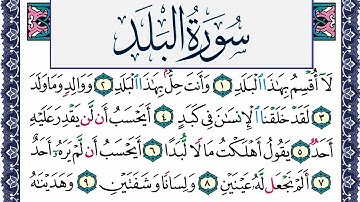 سُورَةُ البَلَدِ
لَآ أُقْسِمُ بِهَٰذَا ٱلْبَلَدِ ١ وَأَنتَ حِلٌّۢ بِهَٰذَا ٱلْبَلَدِ ٢ وَوَالِدٍ وَمَا وَلَدَ
٣ لَقَدْ خَلَقْنَا ٱلْإِنسَٰنَ فِي كَبَدٍ ٤ أَيَحْسَبُ أَن لَّن يَقْدِرَ عَلَيْهِ
أَحَدٌ ٥ يَقُولُ أَهْلَكْتُ مَالًا لُّبَدًا ٦ أَيَحْسَبُ أَن لَّمْ يَرَهُۥٓ أَحَدٌ
٧ أَلَمْ نَجْعَل لَّهُۥ عَيْنَيْنِ ٨ وَلِسَانًا وَشَفَتَيْنِ ٩ وَهَدَيْنَٰهُ